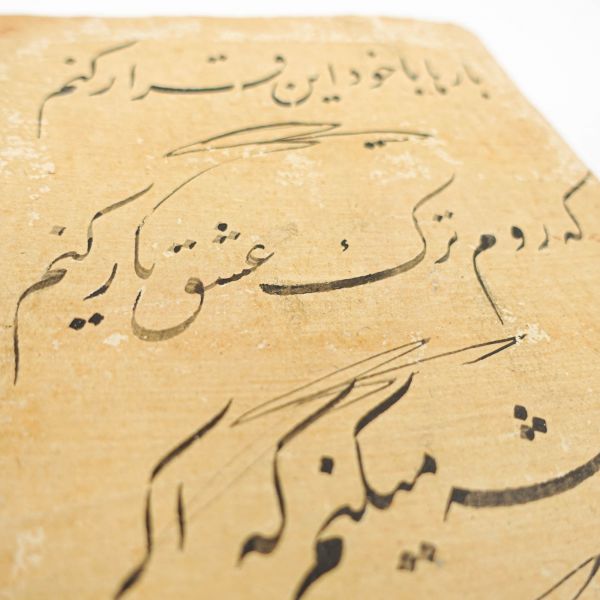 بارها با خود این قرار کنم
که روم ترک عشق یار کنم
میکنم که اگر